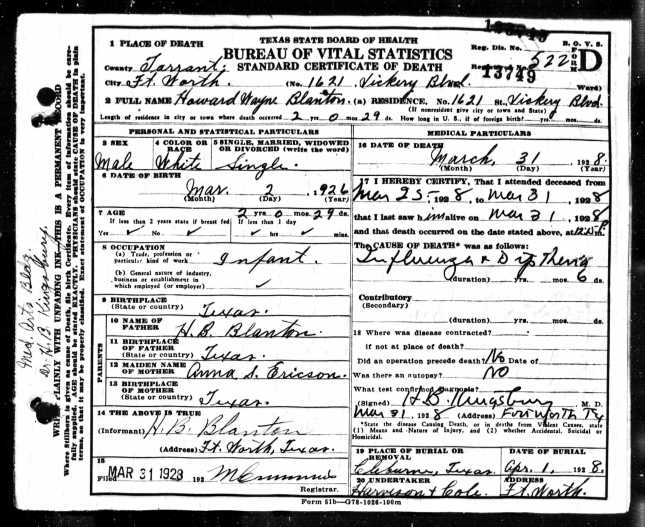 TEXAS STATE BOARD OF HEALTH
BUREAU OF VITAL STATISTICS
STANDARD CERTIFICATE OF DEATH
13749
Reg. Dis. No.
B. O. V. S.
522
D
13749
1 PLACE OF DEATH
County Tarrant
City Ft. Worth (No. 1621 Vickery Blvd. Ward)
2 FULL NAME Howard Wayne Blanton (a) RESIDENCE, No. 1621 St. Vickery Blvd.
(If nonresident give city or town and State)
Length of residence in city or town where death occurred 2 yrs. 0 mos. 29 ds. How long in U. S., if of foreign birth? yrs. mos. ds.
PERSONAL AND STATISTICAL PARTICULARS
3 SEX
Male
4 COLOR OR RACE
White
5 SINGLE, MARRIED, WIDOWED OR DIVORCED (write the word)
Single
6 DATE OF BIRTH
Mar. 2 1926
(Month) (Day) (Year)
7 AGE 2 yrs. 0 mos. 29 ds.
If less than 2 years state if breast fed If less than 1 day
Yes No hrs. mins.
8 OCCUPATION
(a) Trade, profession, or particular kind of work Infant
(b) General nature of industry, business or establishment in which employed (or employer)
9 BIRTHPLACE
(State or country) Texas.
PARENTS
10 NAME OF FATHER H. B. Blanton
11 BIRTHPLACE OF FATHER
(State or country) Texas.
12 MAIDEN NAME OF MOTHER Anna S. Ericson
13 BIRTHPLACE OF MOTHER
(State or country) Texas.
14 THE ABOVE IS TRUE
(Informant) H. B. Blanton
(Address) Ft. Worth, Texas.
15
Filed MAR 31 1928 192
Registrar.
MEDICAL PARTICULARS
16 DATE OF DEATH
March, 31 1928.
(Month) (Day) (Year)
17 I HEREBY CERTIFY, That I attended deceased from
Mar 25, 1928, to Mar 31, 1928
that I last saw him alive on Mar 31, 1928
and that death occurred on the date stated above, at
The CAUSE OF DEATH* was as follows:
Influenza & Diptheria
(duration) yrs. mos. 6 ds.
Contributory
(Secondary)
(duration) yrs. mos. ds.
18 Where was disease contracted?
If not at place of death?
Did an operation precede death? No Date of
Was there an autopsy? NO
What test confirmed diagnosis?
(Signed) H. B. Kingsbury M. D.
Mar 31, 1928 (Address) Fort Worth Tx
*State the disease Causing Death, or in deaths from Violent Causes, state
(1) Means and Nature of Injury, and (2) whether Accidental, Suicidal or
Homicidal.
19 PLACE OF BURIAL OR REMOVAL
Cleburne, Texas
DATE OF BURIAL
Apr. 1, 1928.
20 UNDERTAKER
Harveson & Cole.
ADDRESS
Ft. Worth.
Form 51b—G78-1026-100m
Med. Arts Bldg.
Dr. H. B. Kingsbury.